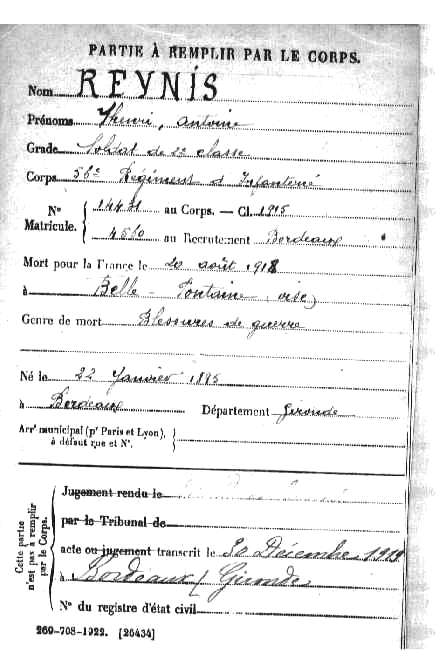 PARTIE À REMPLIR PAR LE CORPS.
Nom REYNIS
Prénoms Henri, Antoine
Grade Soldat de 2e classe
Corps 56e Régiment d'Infanterie
Nº Matricule. 14431 au Corps. — Cl. 1915
4560 au Recrutement Bordeaux
Mort pour la France le 20 août 1918
à Belle-Fontaine (Oise)
Genre de mort Blessures de guerre
Né le 22 Janvier 1895
à Bordeaux Département Gironde
Arrt municipal (pr Paris et Lyon),
à défaut rue et Nº.
Cette partie
n'est pas à remplir
par le Corps.
Jugement rendu le
par le Tribunal de
acte ou jugement transcrit le 30 Décembre 1919
à Bordeaux (Gironde)
Nº du registre d'état civil
269-708-1922. [26434]